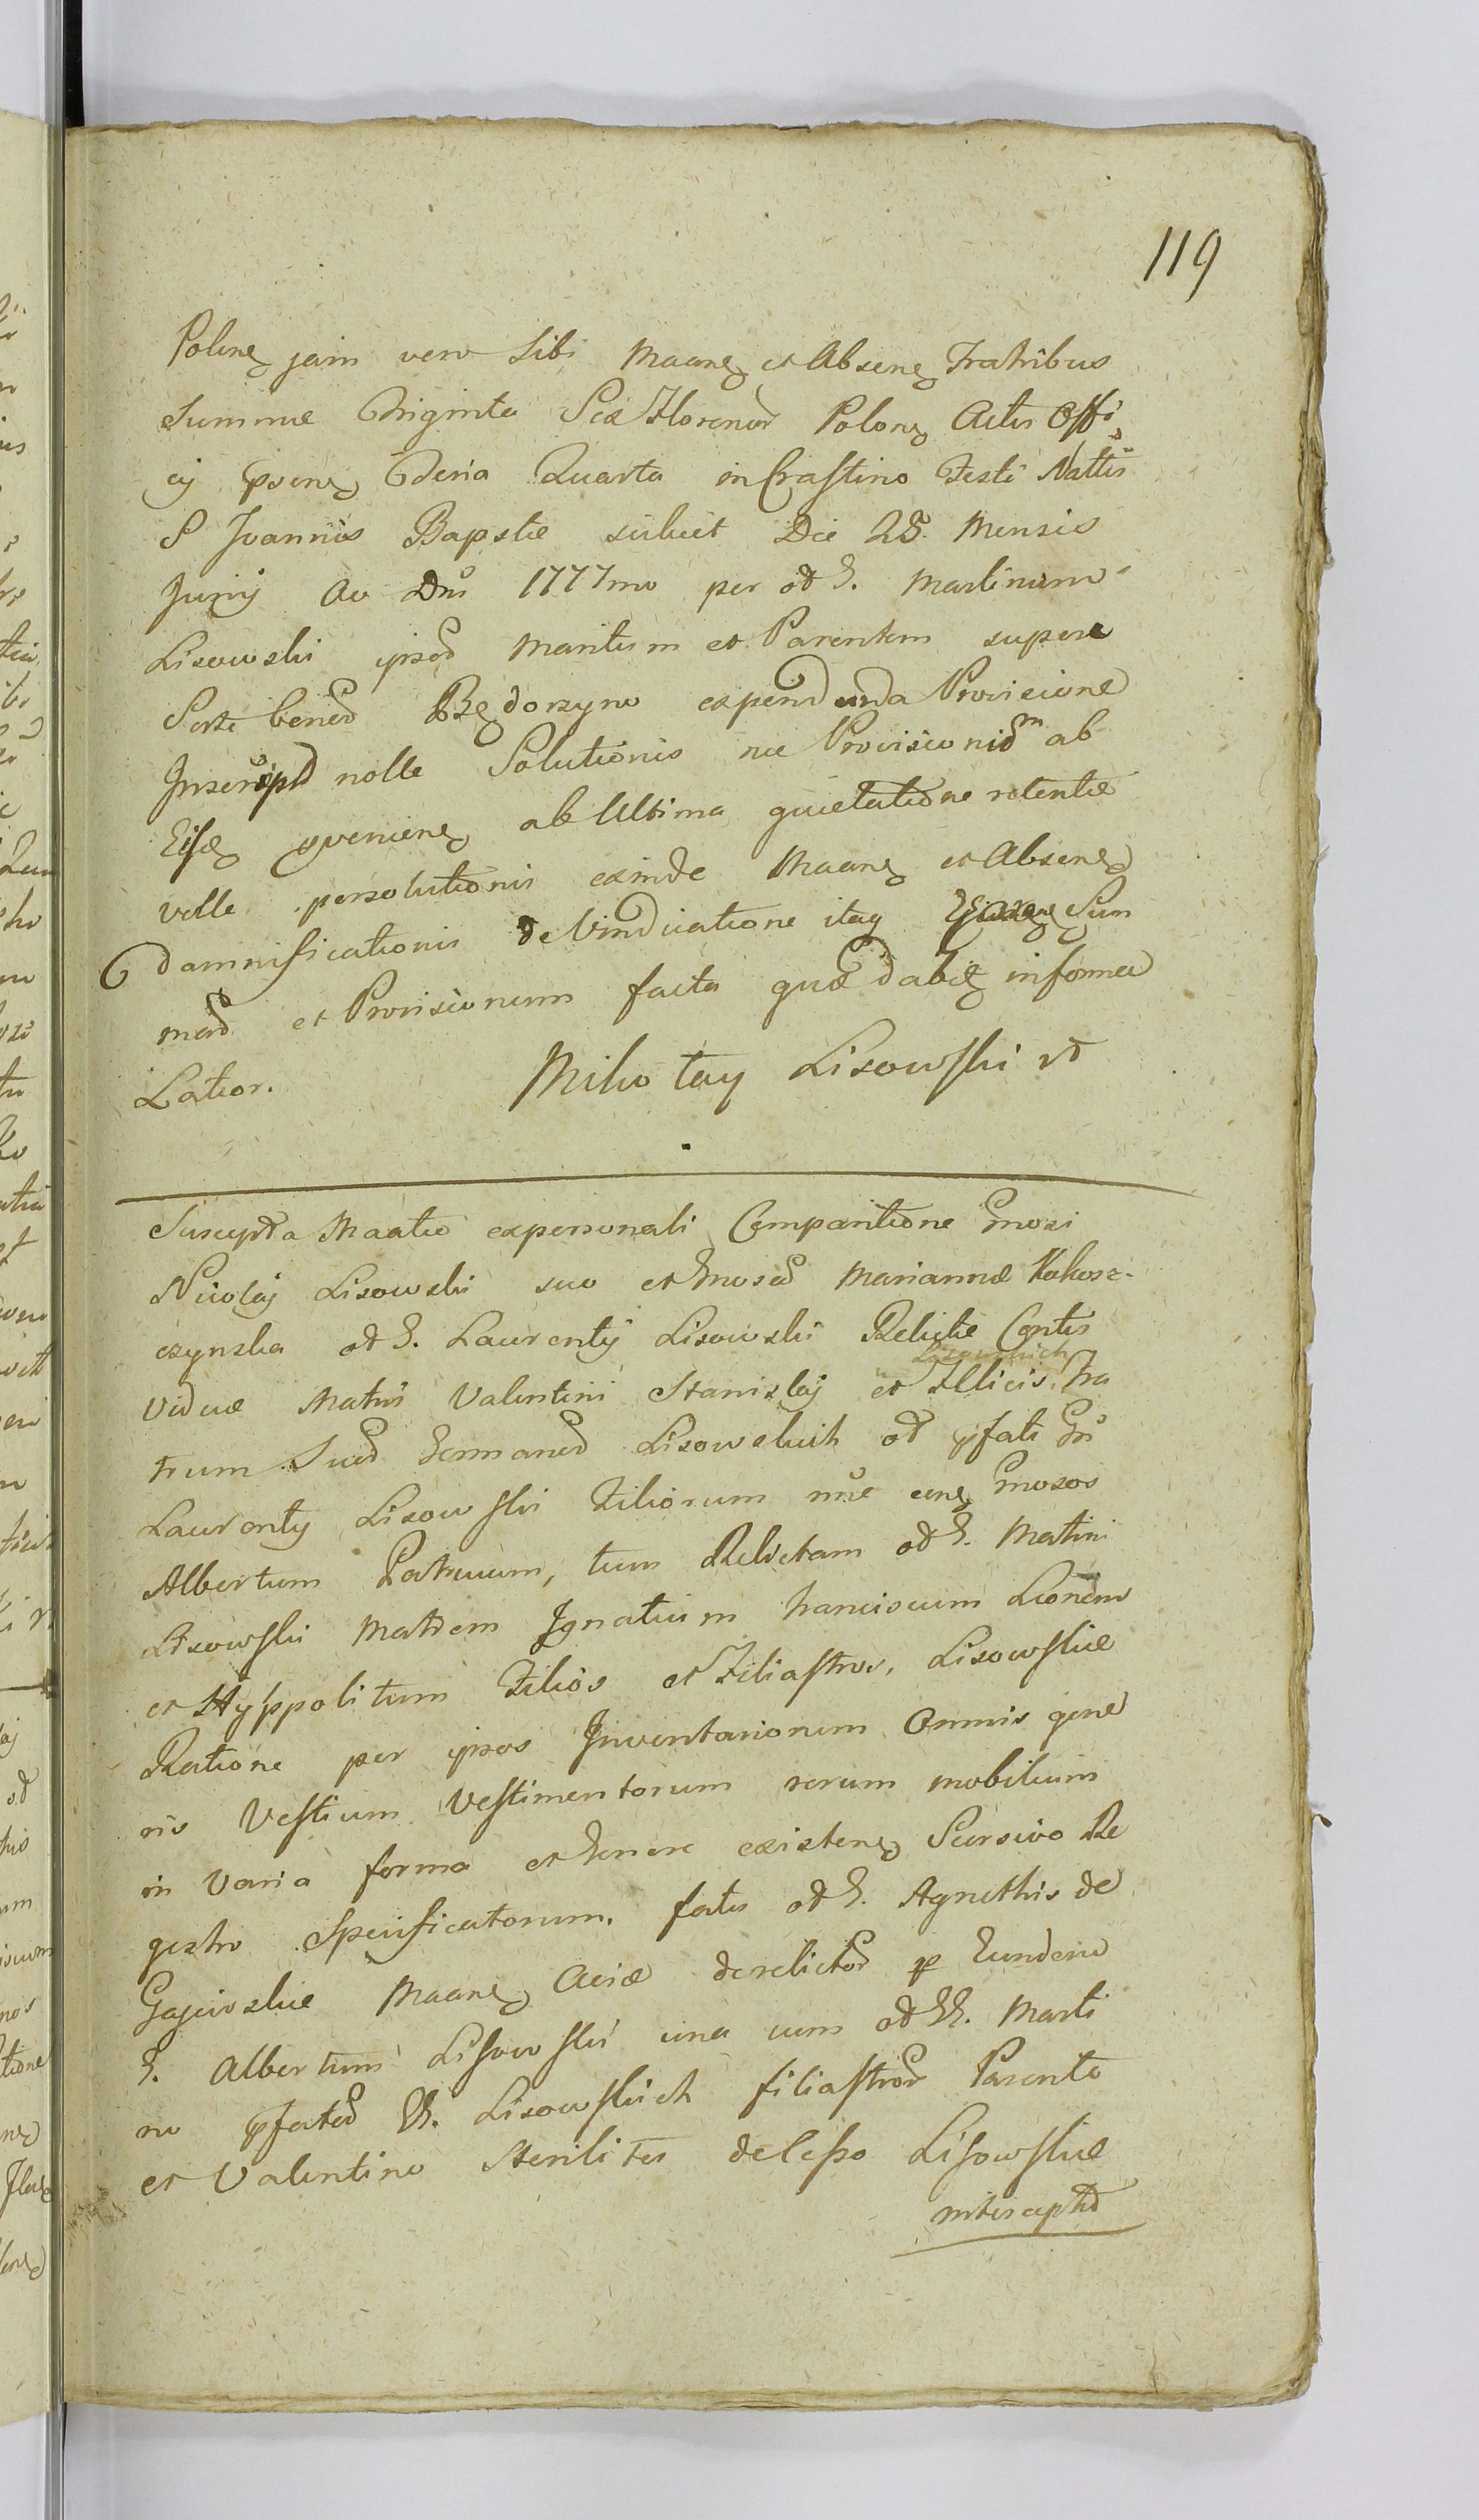 119
Polonę jam vero sibi Maanę et Absenę Fratribus
Summæ Triginta Sex Florenor Polonę Actis Offi
cij pnsenę Feria Quarta in Crastino Festi Nattis
S Joannis Bapstæ scilicet Die 25. Mensis
Junij Ao Dni 1777mo per od G. Martinum
Lisowski ipsor Maritum et Parentem super
Sorte bonor Będorzyno expendenda Provisione
Inscript nolle Solutionis nec Provisionis ab
Eisdę pvenienę ab Ultima quietatione retentæ
velle persolutionis exinde Maanę et Absenę
damnificationis de Vindicatione itaq Sum
mar et Provisionum facta quæ dabit informa
Latior. Mikołay Lisowski rt
Suscepta Maatio ex personali Comparitione Gnosi
Nicolaj Lisowski suo et Gnosar Mariannæ Kokosz-
czynska od G. Laurentij Lisowski Relictæ Contis
Viduæ Matris Valentini Stanislaj et Felicis Fra
Lisowskich
trum Suor Germanor Lisowskich od pfati Gn
Laurentij Lisowski Filiorum nne cenę Gnosos
Albertum Patruum, tum Relictam od G. Matini
Lisowski Matrem Ignatium Franciscum Leonem
et Hyppolitum Filios et Filiastros, Lisowskie
Ratione per ipsos Inventariorum Omnis gene
ris Vestium Vestimentorum rerum mobilium
in Varia forma et Genere existenę Seorsivo Re
gestro Specificatorum, fatis od G. Agnethis de
Gajewskie Maanę Aviæ derelictor p Eundem
G. Albertum Lisowski una cum od GG. Marti
no pfator GG. Lisowskich filiastror Parente
et Valentino Steriliter decesso Lisowskie
interceptor